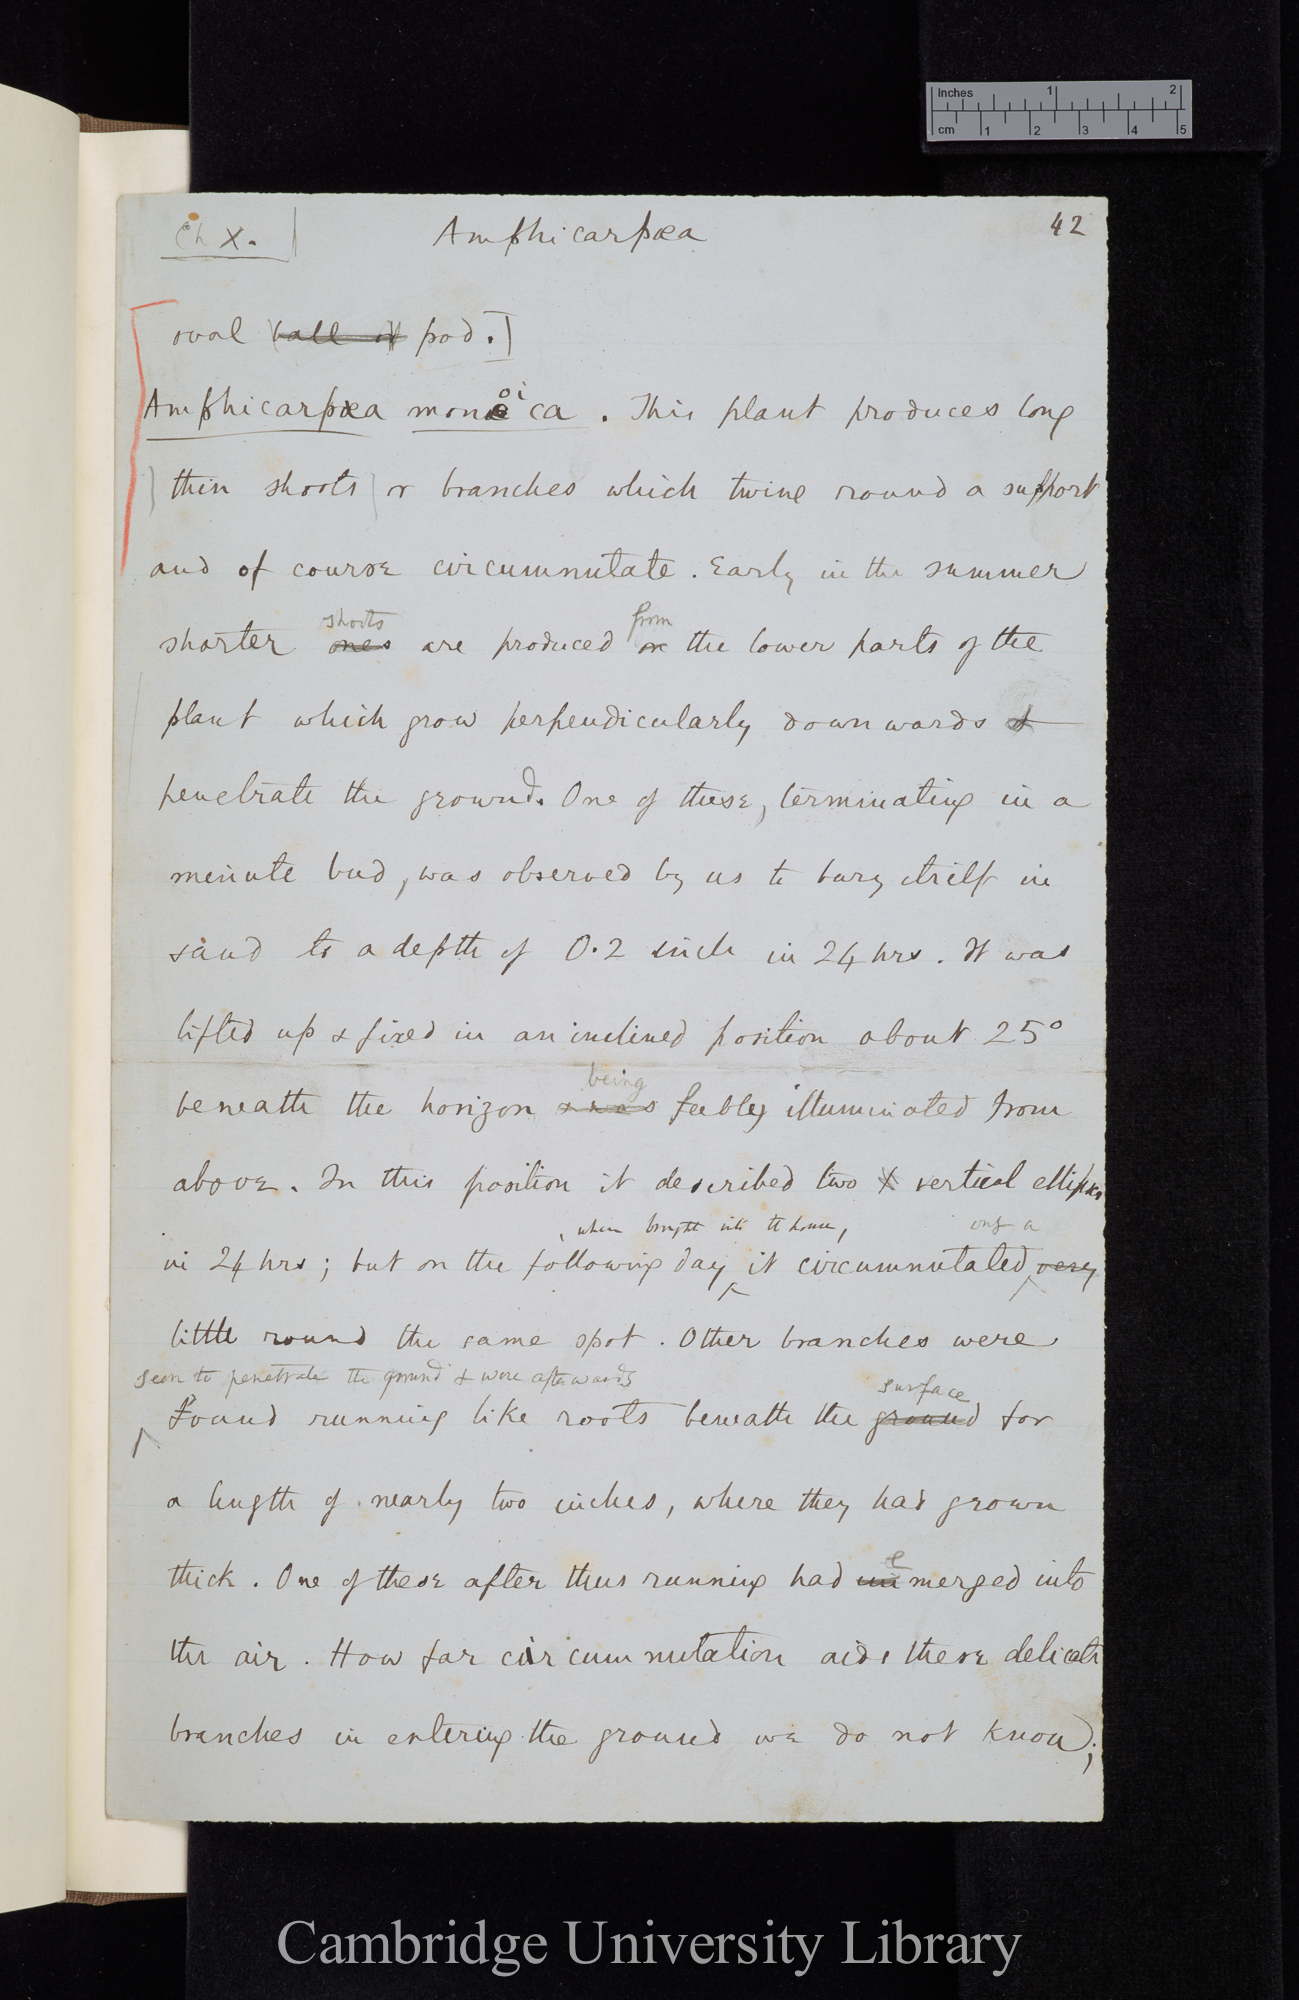 Inches 1 2
cm 1 2 3 4 5
Ch X. Amphicarpæa 42
oval ball or pod.]
Amphicarpæa monoica. This plant produces long
thin shoots or branches which twine round a support
and of course circumnutate. Early in the summer
shoots from
shorter ones are produced on the lower parts of the
plant which grow perpendicularly downwards &
penetrate the ground. One of these, terminating in a
minute bud, was observed by us to bury itself in
sand to a depth of 0.2 inch in 24 hrs. It was
lifted up & fixed in an inclined position about 25°
being
beneath the horizon & was feebly illuminated from
above. In this position it described two vertical ellipses
, when brought into the house, only a
in 24 hrs; but on the following day it circumnutated very
little round the same spot. Other branches were
seen to penetrate the ground & were afterwards
surface
found running like roots beneath the ground for
a length of nearly two inches, where they had grown
thick. One of these after thus running had emerged into
the air. How far circumnutation aids these delicate
branches in entering the ground we do not know;
Cambridge University Library